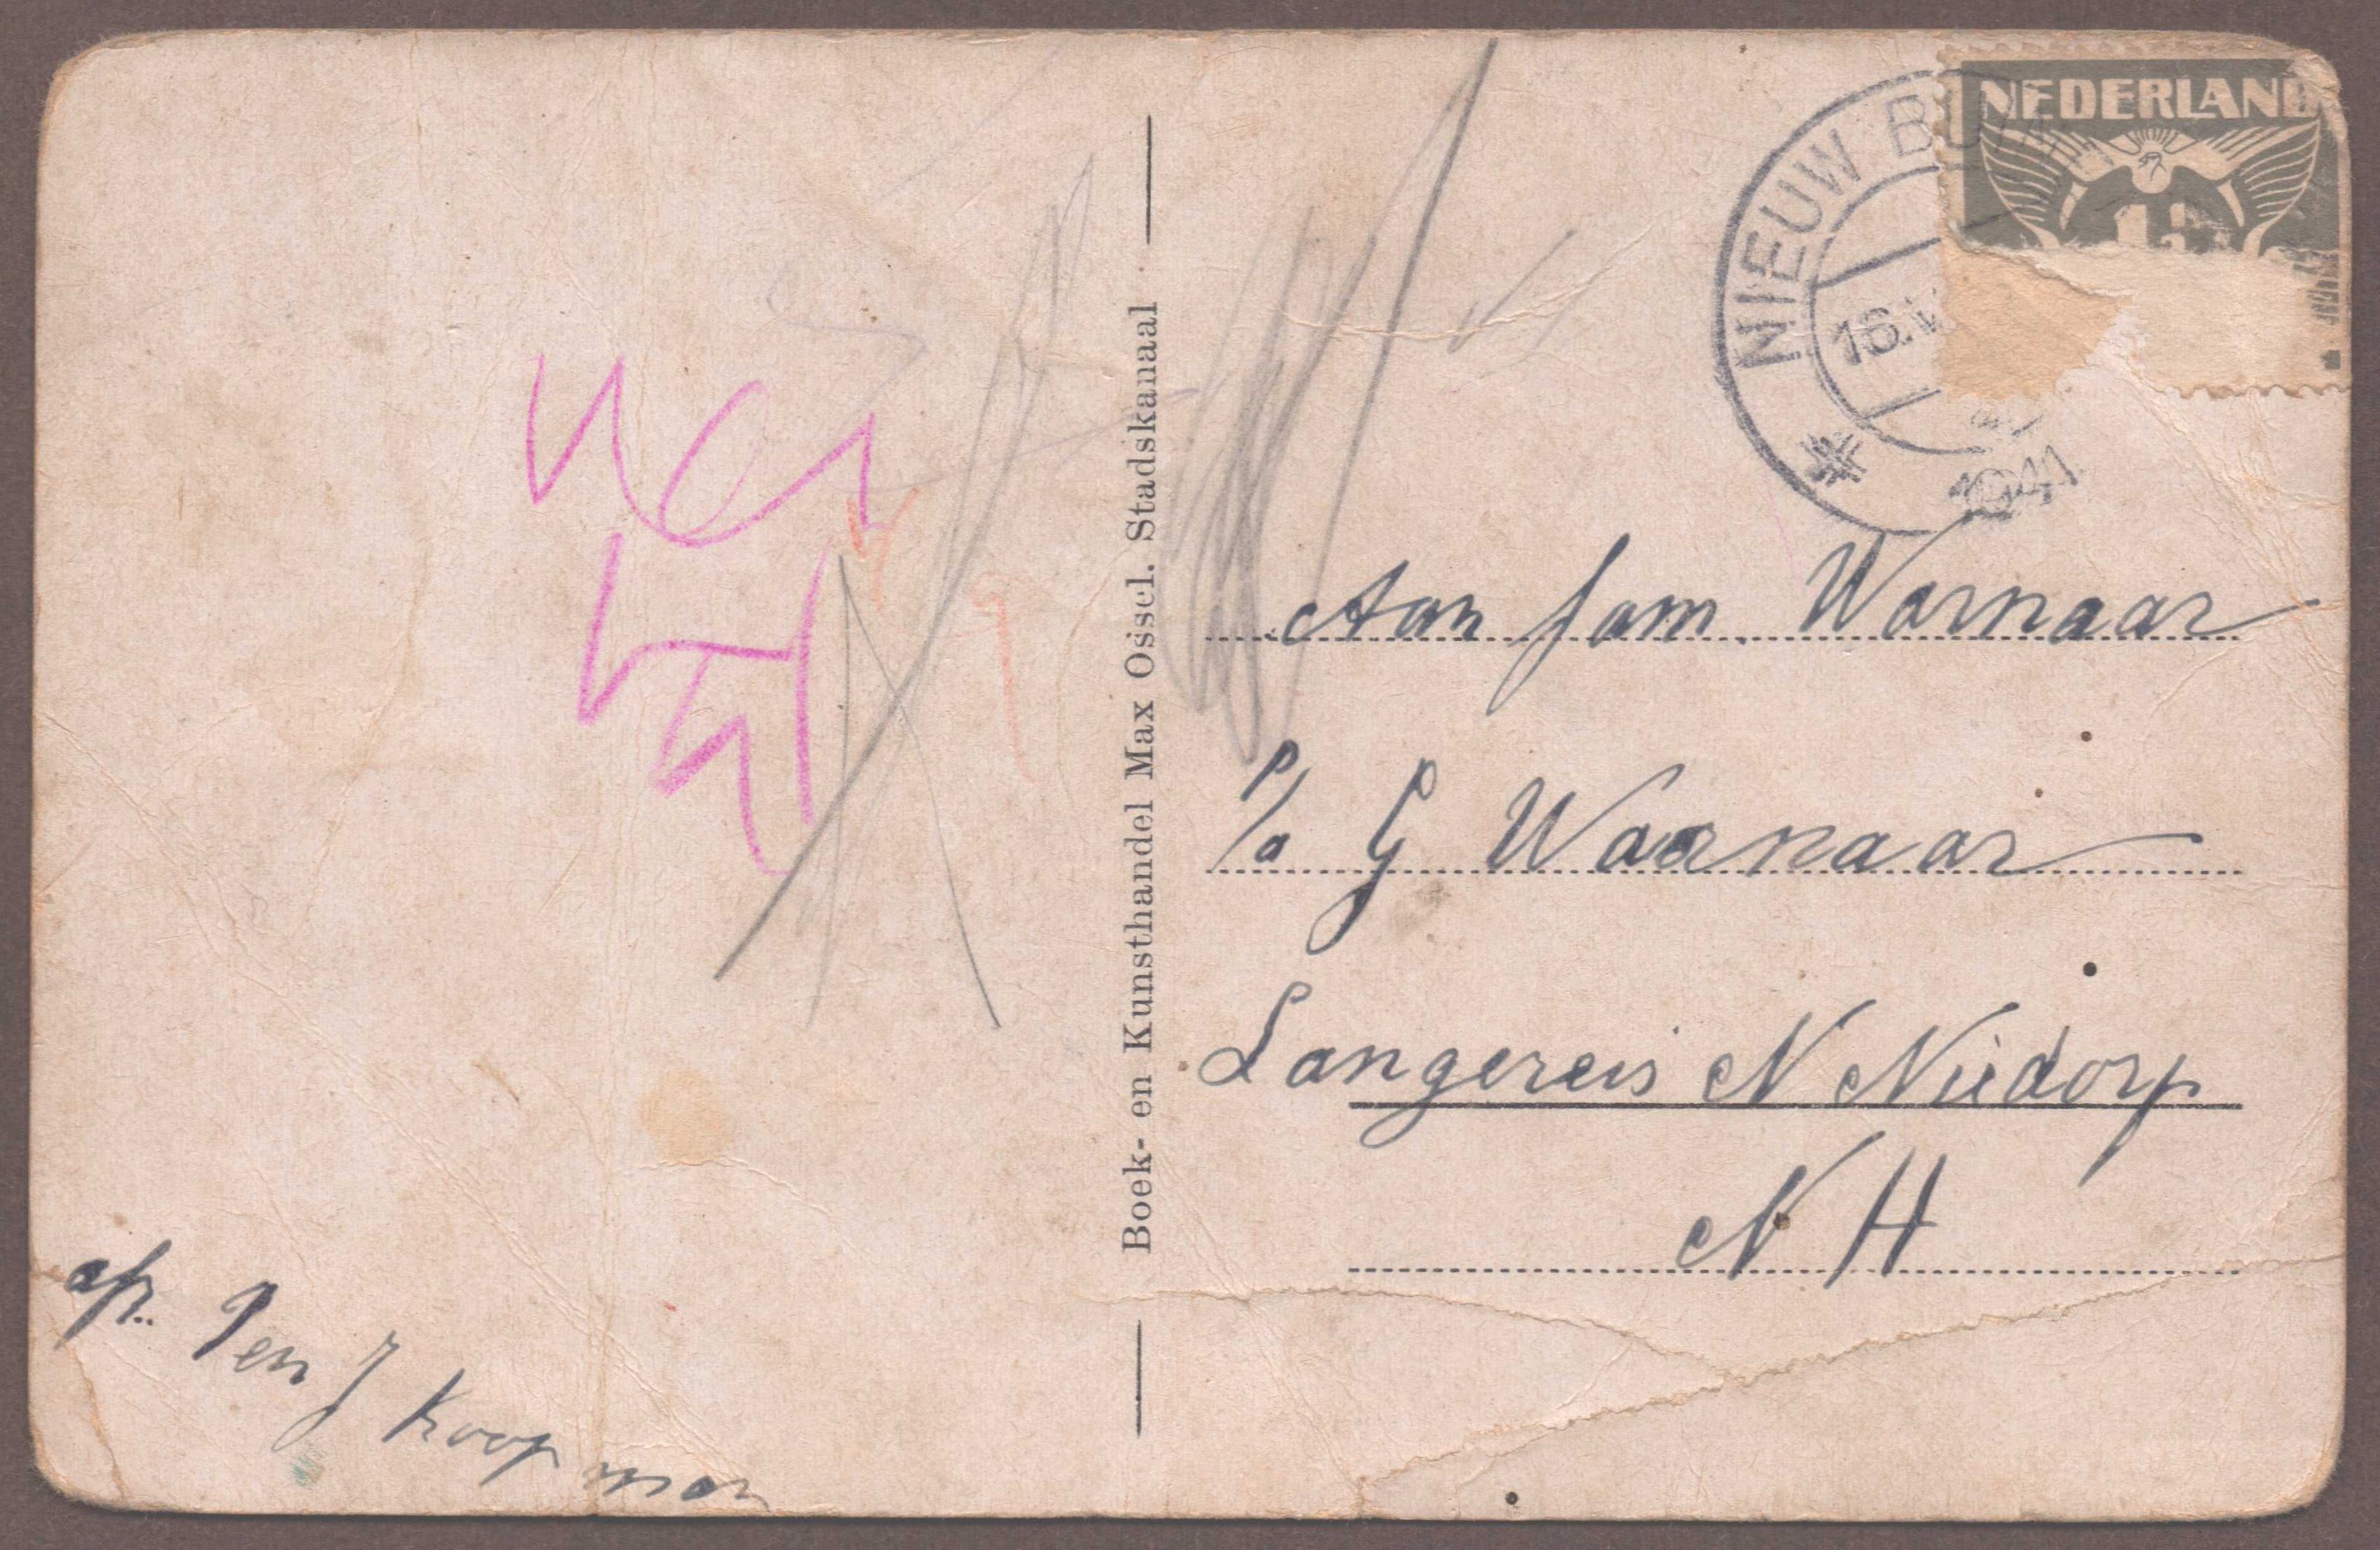 NEDERLAND
NIEUW
16.V
1941
Aan fam. Warnaar
p/a G Warnaar
Langereis N Niedorp
N H
Boek- en Kunsthandel Max Ossel. Stadskanaal
afz. P en J Koopman